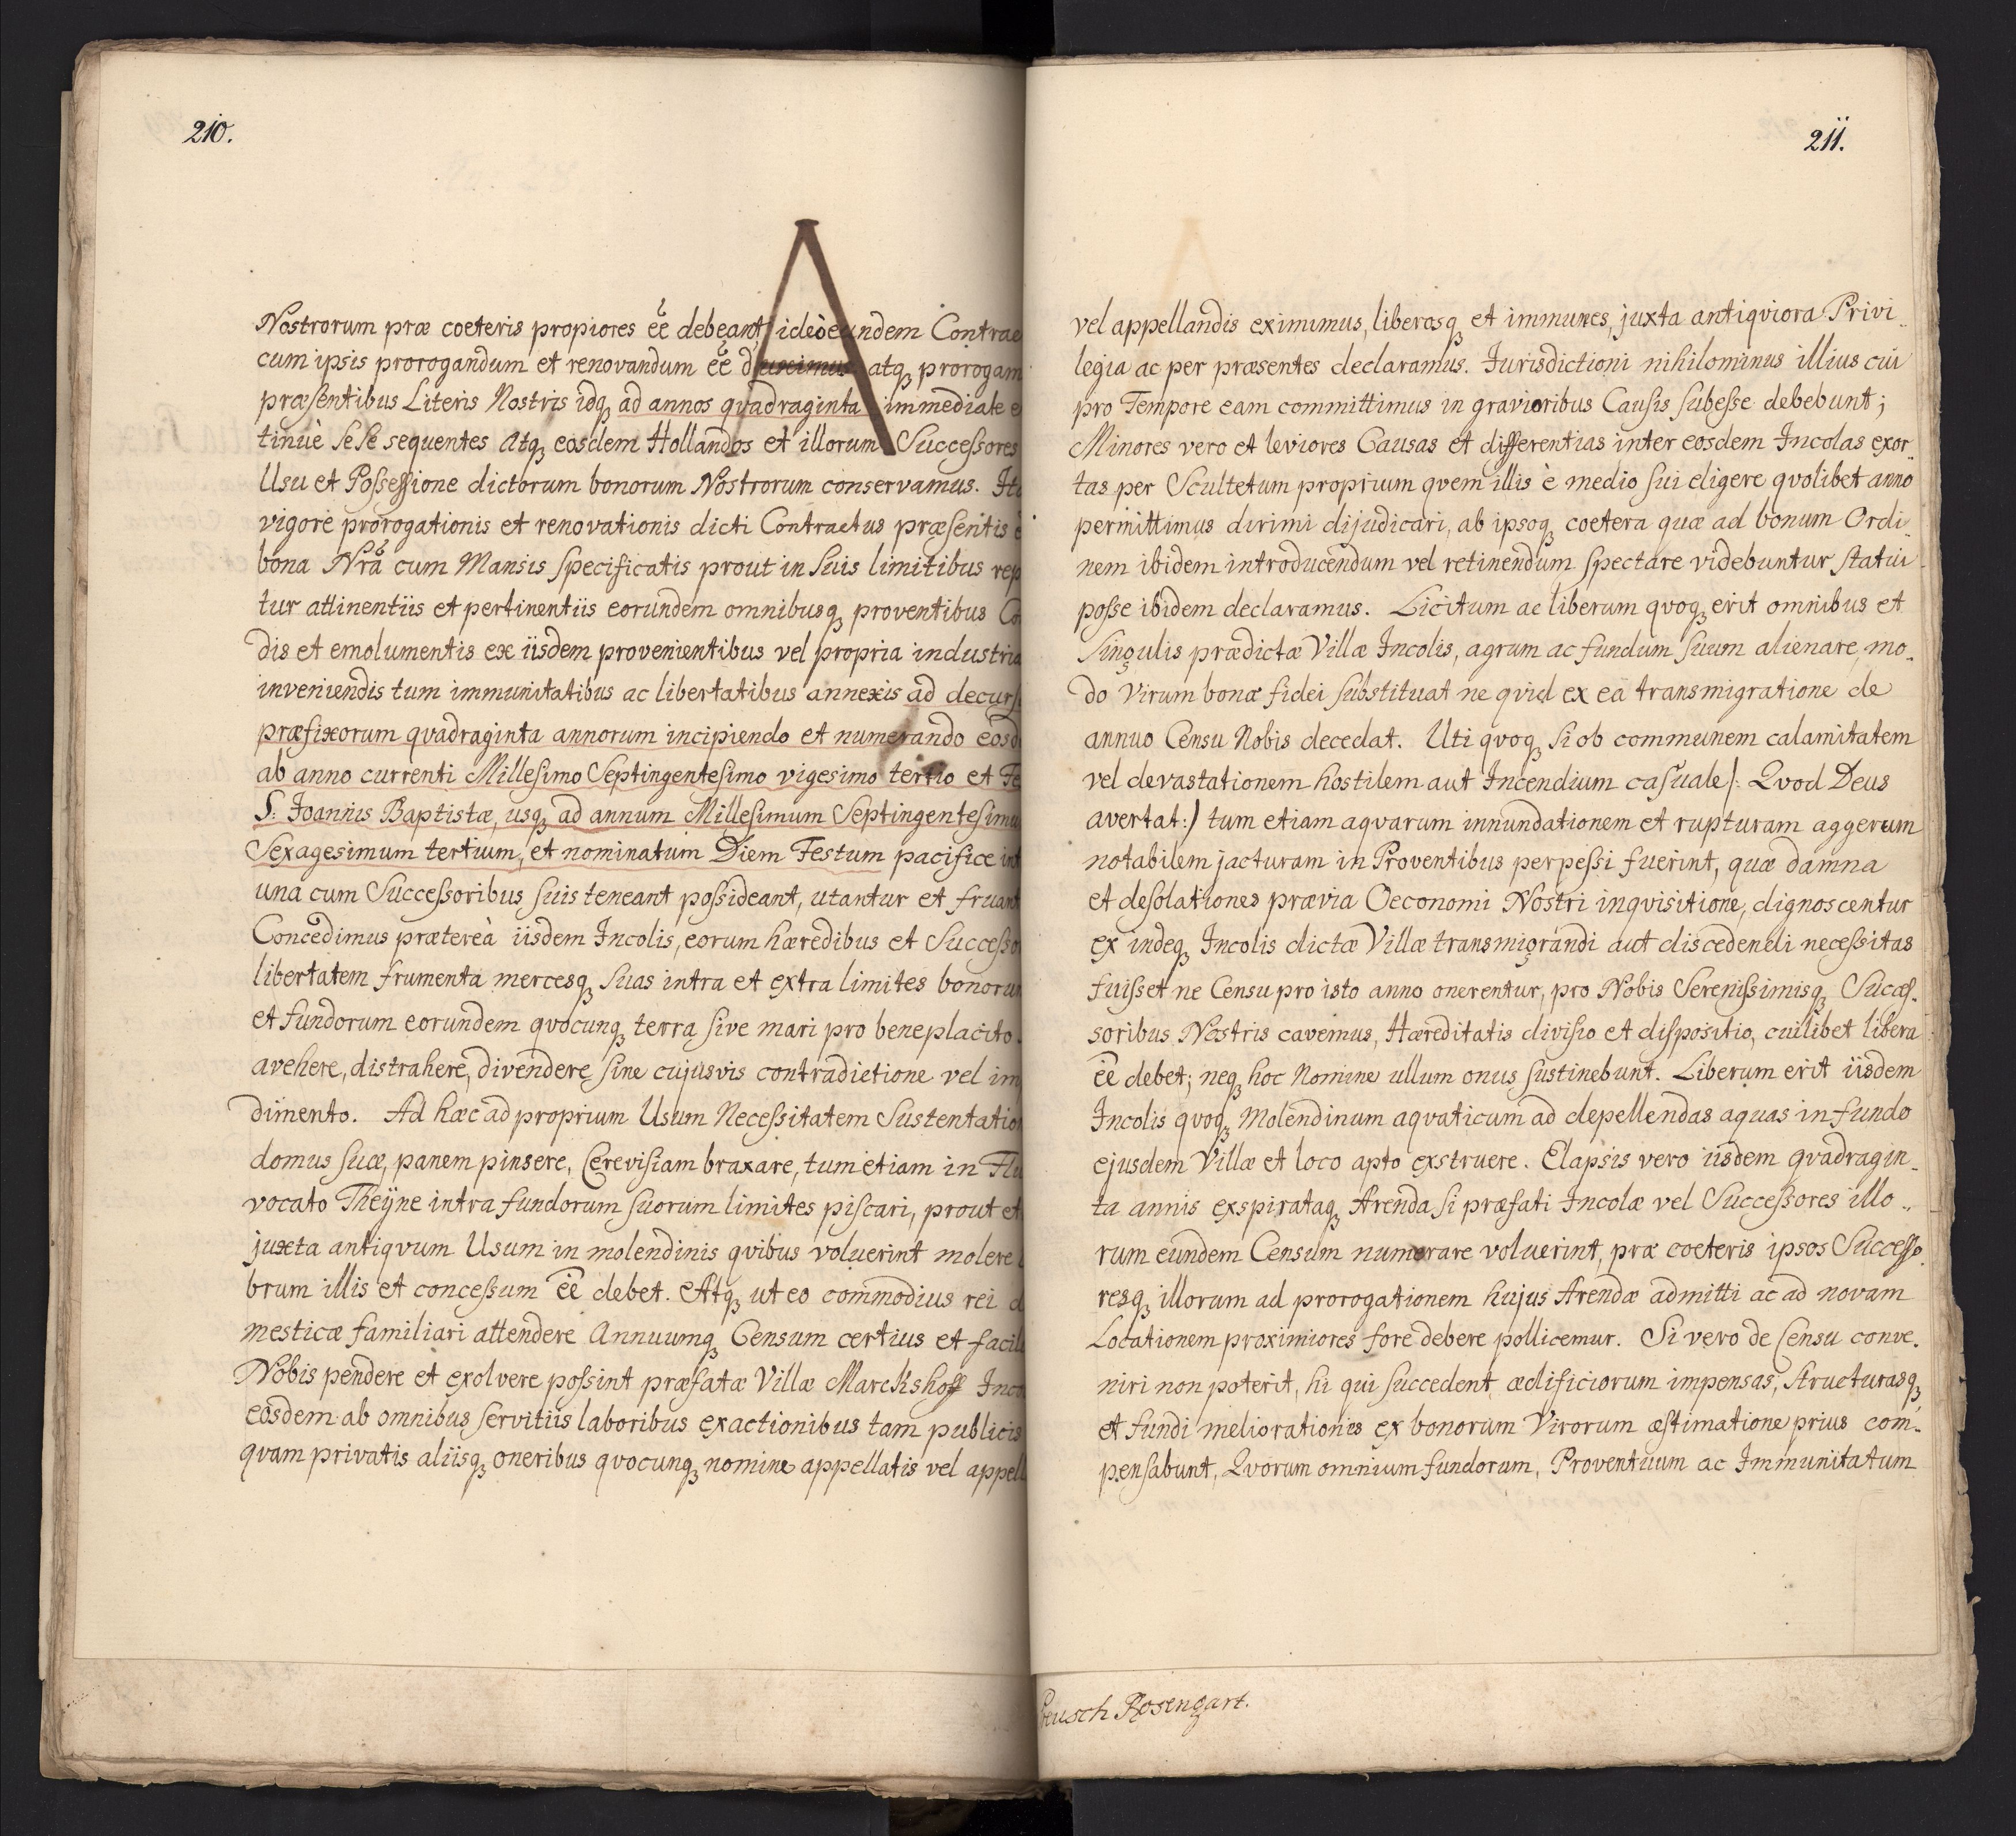 210.
Nostrorum præ coeteris propiores eẽ debeant, ideò eundem Contrac
cum ipsis prorogandum et renovandum eẽ duximus atq prorogam
præsentibus Literis Nostris idq ad annos qvadraginta immediate e
tinuè sese sequentes Atq eosdem Hollandos et illorum Successores
Usu et Possessione dictorum bonorum Nostrorum conservamus. Ita
vigore prorogationis et renovationis dicti Contractus præsentis e
bona Nrã cum Mansis specificatis prout in suis limitibus rep
tur attinentiis et pertinentiis eorundem omnibusq proventibus Co
dis et emolumentis ex iisdem provenientibus vel propria industria
inveniendis tum immunitatibus ac libertatibus annexis ad decurs
præfixorum qvadraginta annorum incipiendo et numerando eosd
ab anno currenti Millesimo Septingentesimo vigesimo tertio et Fe
S. Joannis Baptistæ, usq ad annum Millesimum Septingentesimu
Sexagesimum tertium, et nominatum Diem Festum pacifice int
una cum Successoribus suis teneant possideant, utantur et fruant
Concedimus prætereà iisdem Incolis, eorum hæredibus et Successo
libertatem frumenta mercesq suas intra et extra limites bonorum
et fundorum eorundem qvocunq terra sive mari pro beneplacito
avehere, distrahere, divendere sine cujusvis contradictione vel im
dimento. Ad hæc ad proprium Usum Necessitatem Sustentation
domus suæ, panem pinsere, Cerevisiam braxare, tum etiam in Flu
vocato Theÿne intra fundorum suorum limites piscari, prout et
juxta antiqvum Usum in molendinis qvibus voluerint molere
brum illis et concessum eẽ debet. Atq ut eo commodius rei d
mesticæ familiari attendere Annuumq Censum certius et facili
Nobis pendere et exolvere possint præfatæ Villæ Marckshoff Inco
eosdem ab omnibus servitiis laboribus exactionibus tam publicis
qvam privatis aliisq oneribus qvocunq nomine appellatis vel appell
211.
vel appellandis eximimus, liberosq et immunes, juxta antiqviora Privi-
legia ac per præsentes declaramus. Jurisdictioni nihilominus illius cui
pro Tempore eam committimus in gravioribus Causis subesse debebunt;
Minores vero et leviores Causas et differentias inter eosdem Incolas exor-
tas per Scultetum proprium qvem illis è medio sui eligere qvolibet anno
permittimus dirimi dijudicari, ab ipsoq coetera quæ ad bonum Ordi-
nem ibidem introducendum vel retinendum spectare videbuntur statui
posse ibidem declaramus. Licitum ac liberum qvoq erit omnibus et
Singulis prædictæ Villæ Incolis, agrum ac fundum suum alienare, mo-
do Virum bonæ fidei substituat ne qvid ex ea transmigratione de
annuo Censu Nobis decedat. Uti qvoq si ob communem calamitatem
vel devastationem hostilem aut Incendium casuale /: Qvod Deus
avertat:/ tum etiam aqvarum innundationem et rupturam aggerum
notabilem jacturam in Proventibus perpessi fuerint, quæ damna
et desolationes prævia Oeconomi Nostri inqvisitione, dignoscentur
ex indeq Incolis dictæ Villæ transmigrandi aut discedendi necessitas
fuisset ne Censu pro isto anno onerentur, pro Nobis Serenissimisq Succes-
soribus Nostris cavemus, Hæreditatis divisio et dispositio, cuilibet libera
eẽ debet; neq hoc Nomine ullum onus sustinebunt. Liberum erit iisdem
Incolis qvoq Molendinum aqvaticum ad depellendas aquas in fundo
ejusdem Villæ et loco apto exstruere. Elapsis vero iisdem qvadragin-
ta annis exspirataq Arenda si præfati Incolæ vel Successores illo-
rum eundem Censum numerare voluerint, præ coeteris ipsos Successo-
resq illorum ad prorogationem hujus Arendæ admitti ac ad novam
Locationem proximiores fore debere pollicemur. Si vero de Censu conve-
niri non poterit, hi qui succedent ædificiorum impensas, structurasq
et fundi meliorationes ex bonorum Virorum æstimatione prius com-
pensabunt, Qvorum omnium fundorum, Proventuum ac Immunitatum
Rosengart.